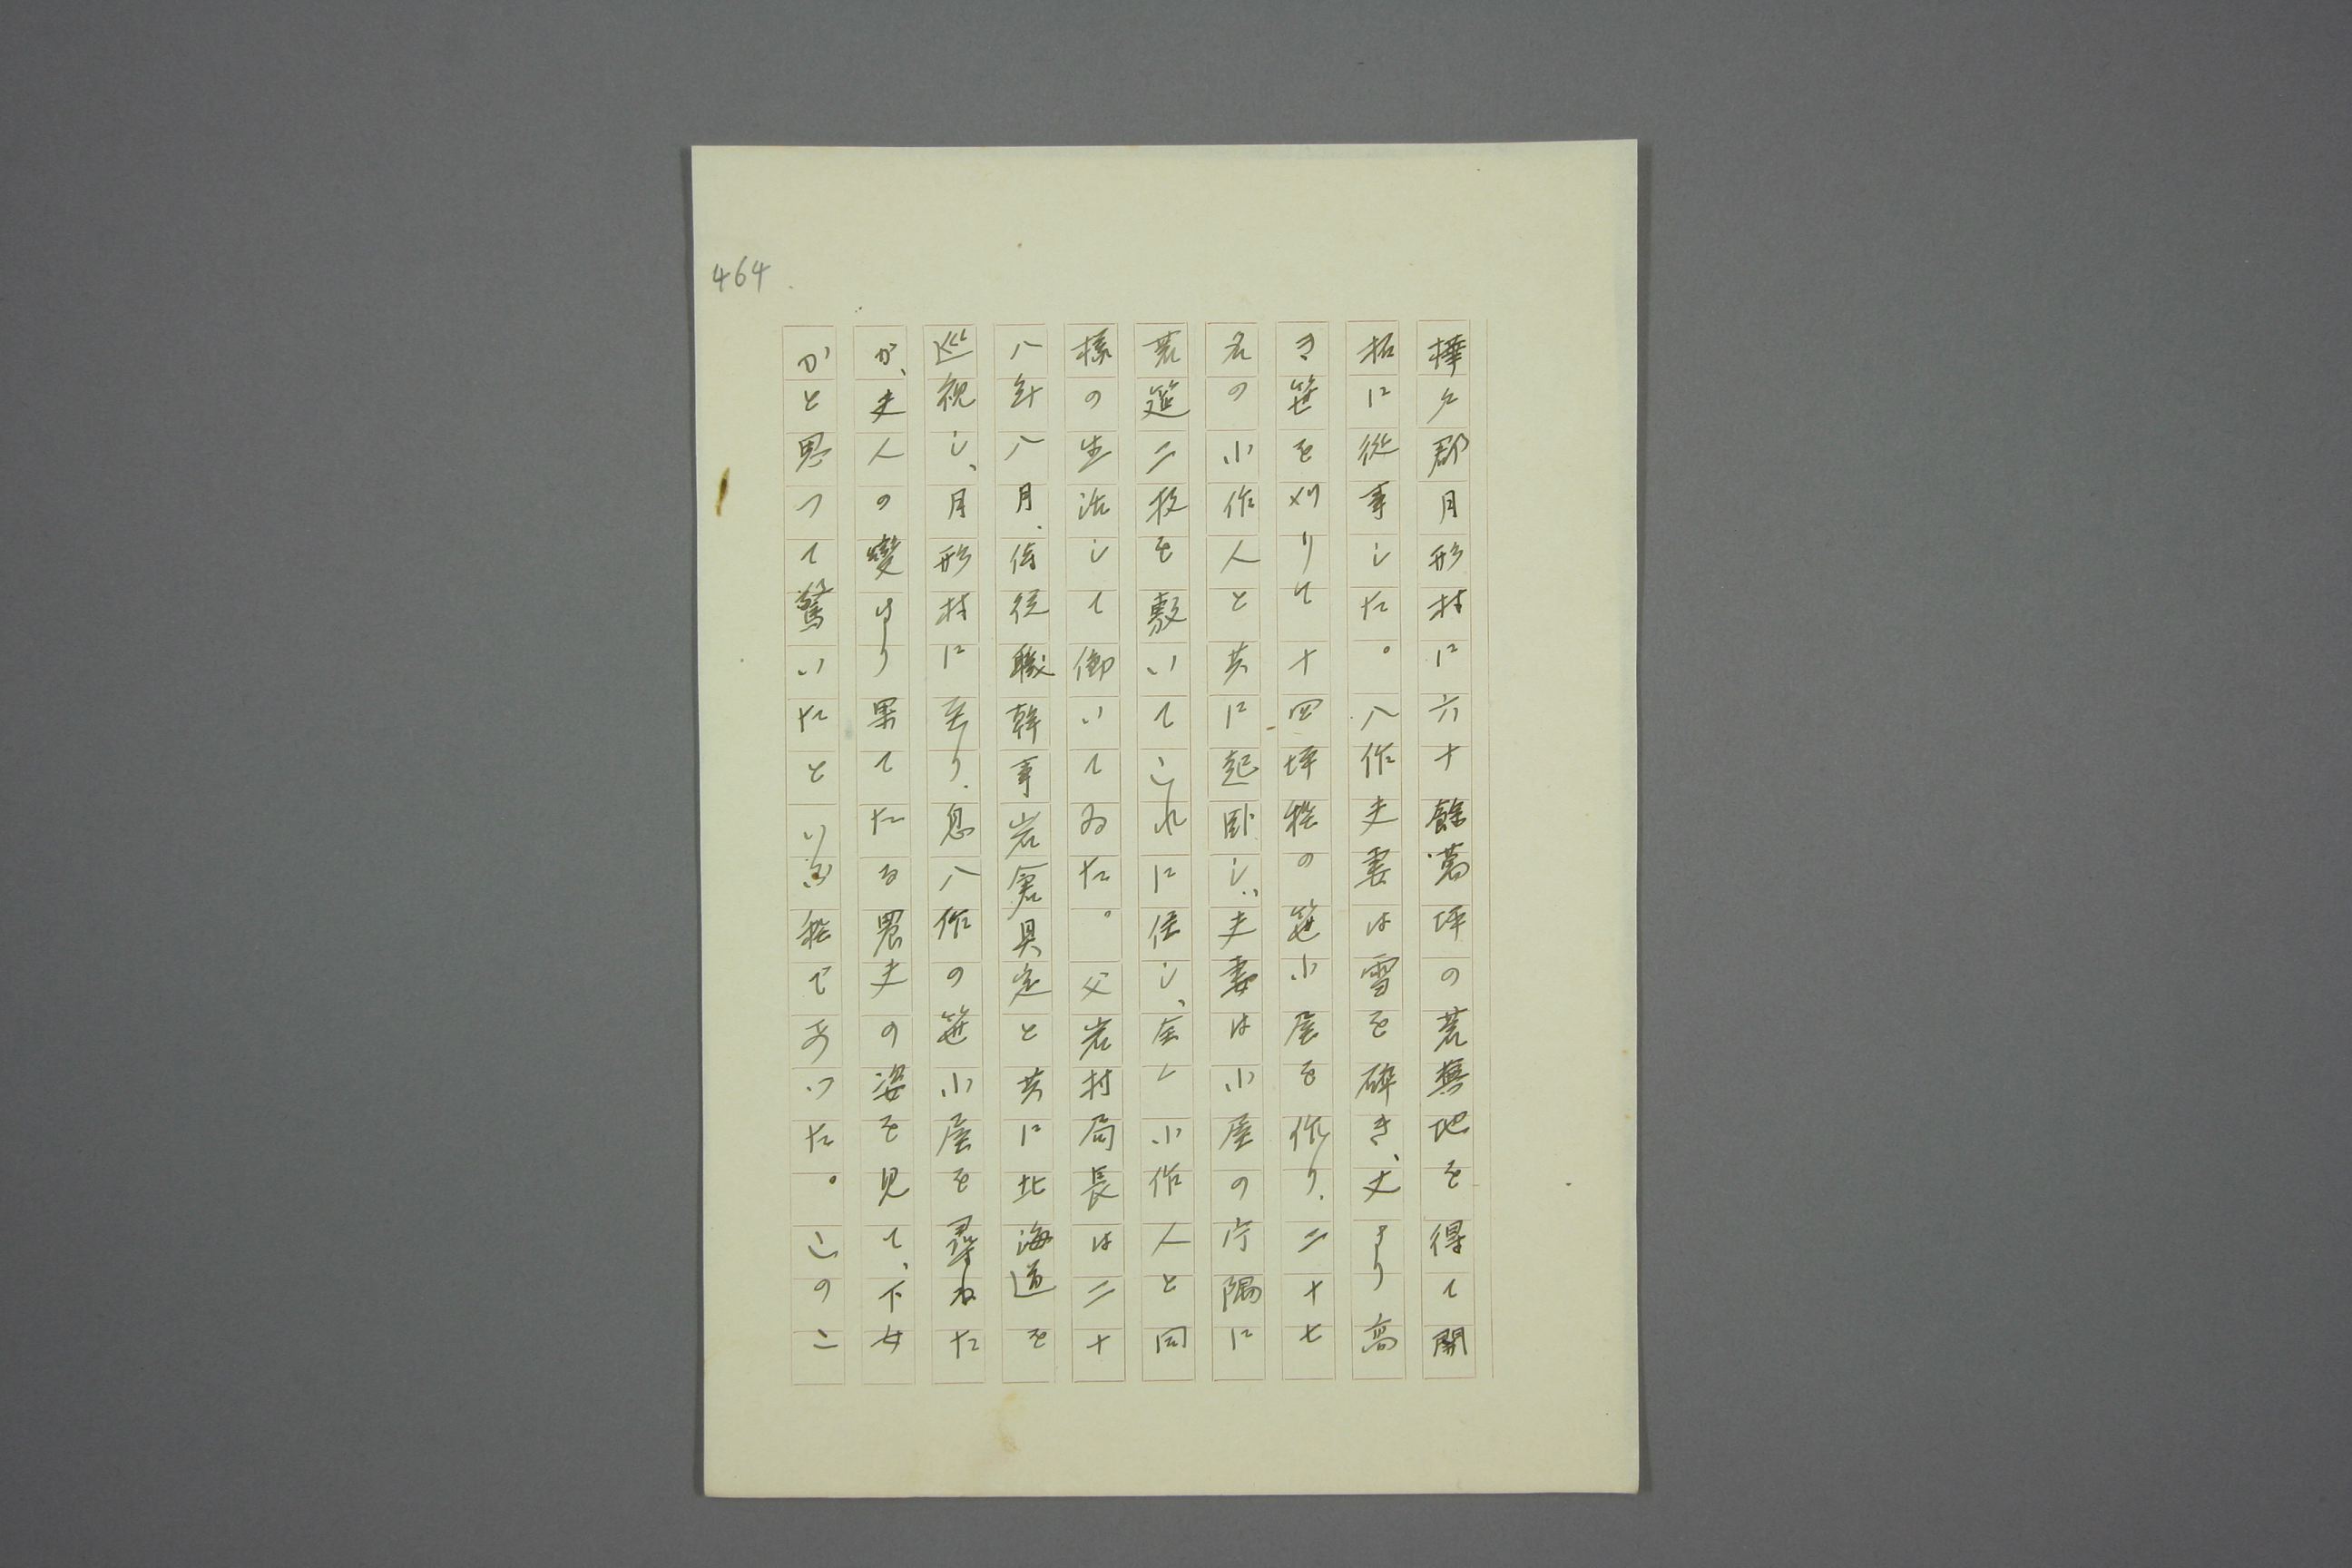 464
樺戸郡月形村に六十餘萬坪の荒蕪地を得て開
拓に從事した。八作夫妻は雪を碎き、丈より高
き笹を刈りて十四坪程の笹小屋を作り、二十七
名の小作人と共に起臥し、夫妻は小屋の片隅に
荒筵二枚を敷いてこれに住し、全く小作人と同
樣の生活して働いてゐた。父岩村局長は二十
八年八月、侍從職幹事岩倉具定と共に北海道を
巡視し、月形村に至り、息八作の笹小屋を尋ねた
が、夫人の變より果てたる農夫の姿を見て、下女
かと思つて驚いたといふ程であつた。このこ